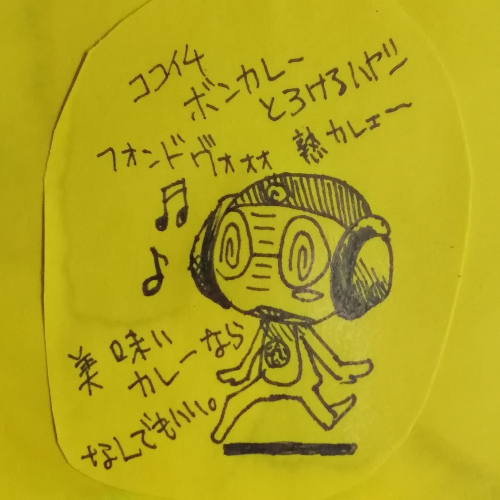 ココイチ
ボンカレー
とろけるハヤシ
フォンドヴォオオ 熟カレェー
美味い
カレーなら
なんでもいい。